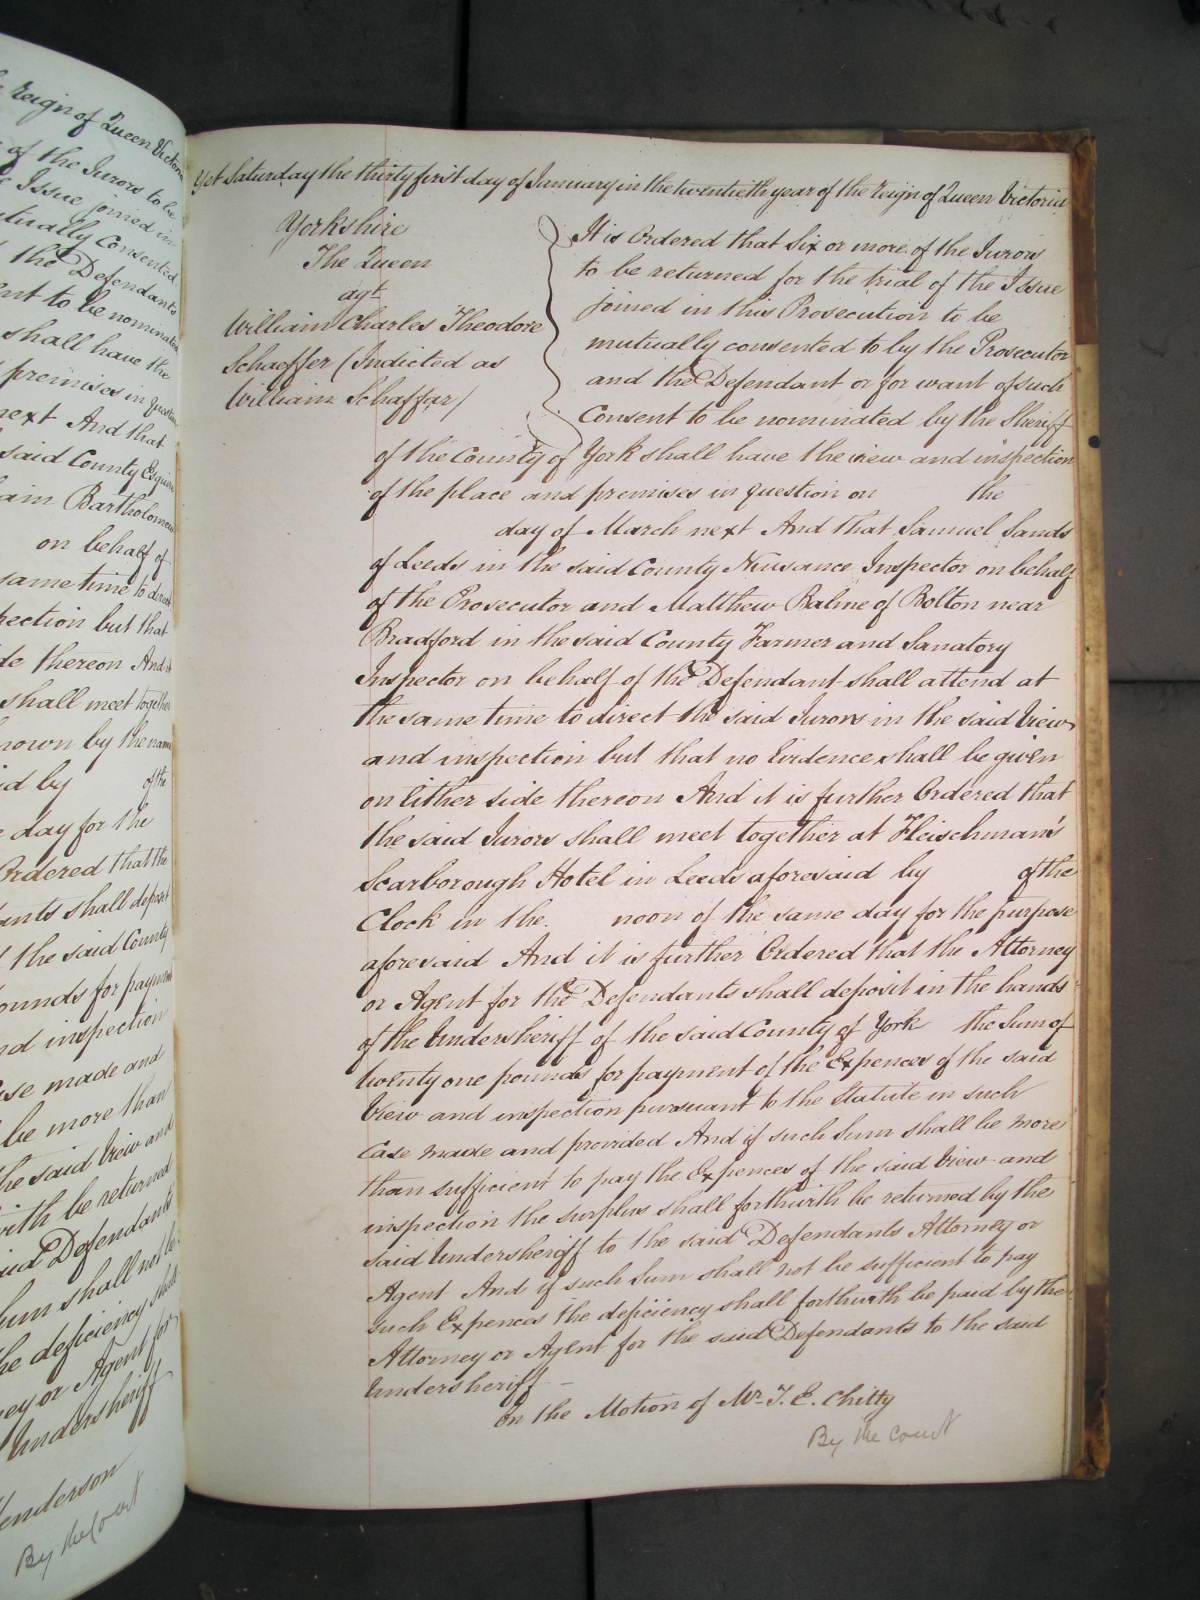 Reign of Queen Victoria
of the Jurors to be
Issue joined in
mutually consented
the Defendants
to be nominated
shall have the
premises in question
next And that
said County Esquire
Bartholomew
on behalf of
same time to direct
inspection but that
side thereon And it
shall meet together
known by the name
by of the
day for the
Ordered that the
shall deposit
the said County
pounds for payment
and inspection
case made and
be more than
the said View and
forthwith be returned
said Defendants
Sum shall not be
the deficiency shall
Attorney or Agent for
Undersheriff
Henderson
By the Court
Yet Saturday the thirty first day of January in the twentieth year of the reign of Queen Victoria
Yorkshire
The Queen
agt
William Charles Theodore
Schaeffer (Indicted as
William Schaffar)
It is Ordered that Six or more of the Jurors
to be returned for the trial of the Issue
joined in this Prosecution to be
mutually consented to by the Prosecutor
and the Defendant or for want of such
Consent to be nominated by the Sheriff
of the County of York shall have the view and inspection
of the place and premises in question on the
day of March next And that Samuel Sands
of Leeds in the said County Nuisance Inspector on behalf
of the Prosecutor and Matthew Balme of Bolton near
Bradford in the said County Farmer and Sanatory
Inspector on behalf of the Defendant shall attend at
the same time to direct the said Jurors in the said View
and inspection but that no Evidence shall be given
on Either side thereon And it is further Ordered that
the said Jurors shall meet together at Fleischman's
Scarborough Hotel in Leeds aforesaid by of the
Clock in the noon of the same day for the purpose
aforesaid And it is further Ordered that the Attorney
or Agent for the Defendants shall deposit in the hands
of the Undersheriff of the said County of York the Sum of
twenty one pounds for payment of the Expences of the said
View and inspection pursuant to the Statute in such
Case made and provided And if such Sum shall be more
than sufficient to pay the Expences of the said View and
inspection the surplus shall forthwith be returned by the
said Undersheriff to the said Defendants Attorney or
Agent And if such Sum shall not be sufficient to pay
such Expences the deficiency shall forthwith be paid by the
Attorney or Agent for the said Defendants to the said
Undersheriff
On the Motion of Mr. T. E. Chitty
By the Court